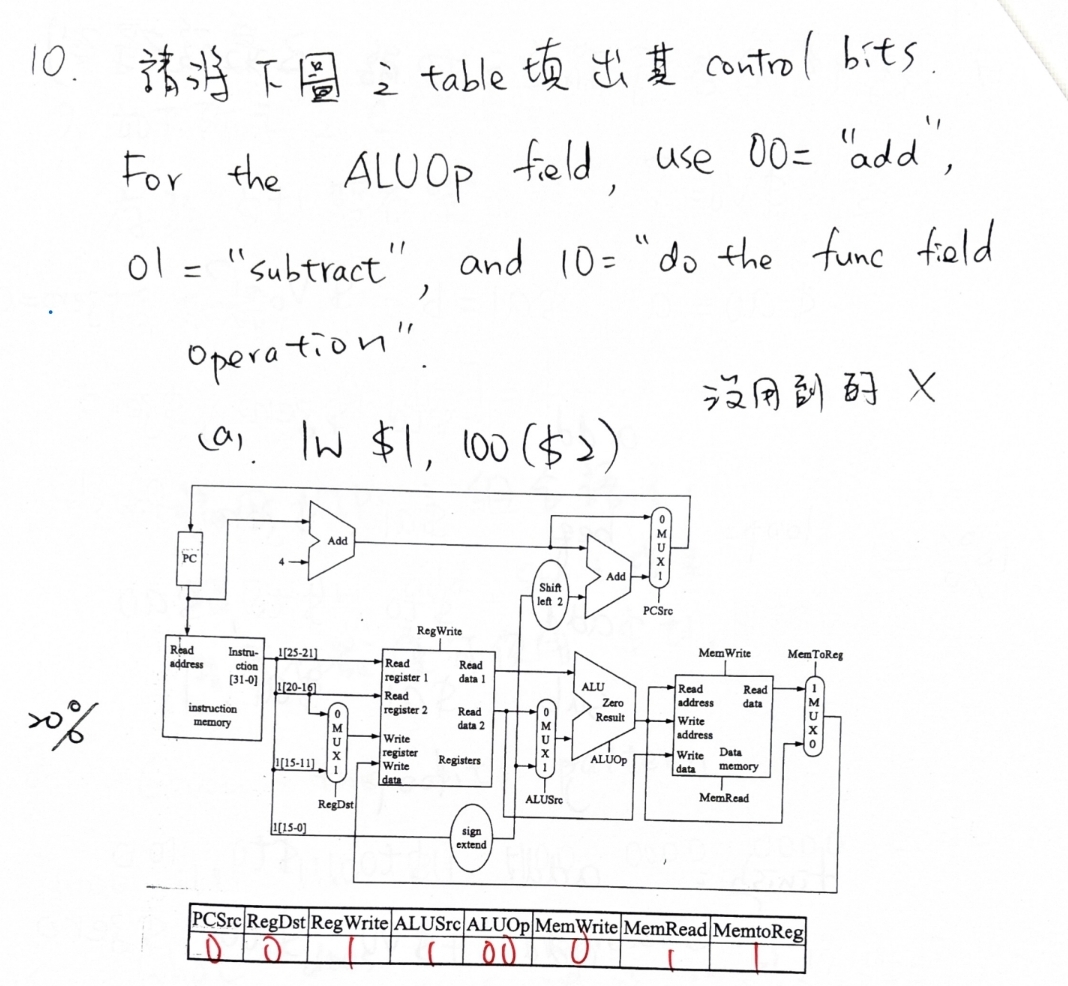 10. 請將下圖之 table 填出其 control bits.
For the ALUOp field, use 00= "add",
01 = "subtract", and 10= "do the func field
operation".
沒用到的 X
(a). lw $1, 100($2)
20%
0
M
U
X
1
Add
PC
4
Add
Shift
left 2
PCSrc
RegWrite
MemWrite MemToReg
Read
address
Instru-
ction
[31-0]
instruction
memory
1[25-21]
1[20-16]
1[15-11]
1[15-0]
0
M
U
X
1
RegDst
Read
register 1
Read
register 2
Write
register
Write
data
Read
data 1
Read
data 2
Registers
0
M
U
X
1
ALUSrc
ALU
Zero
Result
ALUOp
Read
address
Write
address
Write
data
Read
data
Data
memory
MemRead
1
M
U
X
0
sign
extend
PCSrc RegDst RegWrite ALUSrc ALUOp MemWrite MemRead MemtoReg
0 0 1 1 00 0 1 1